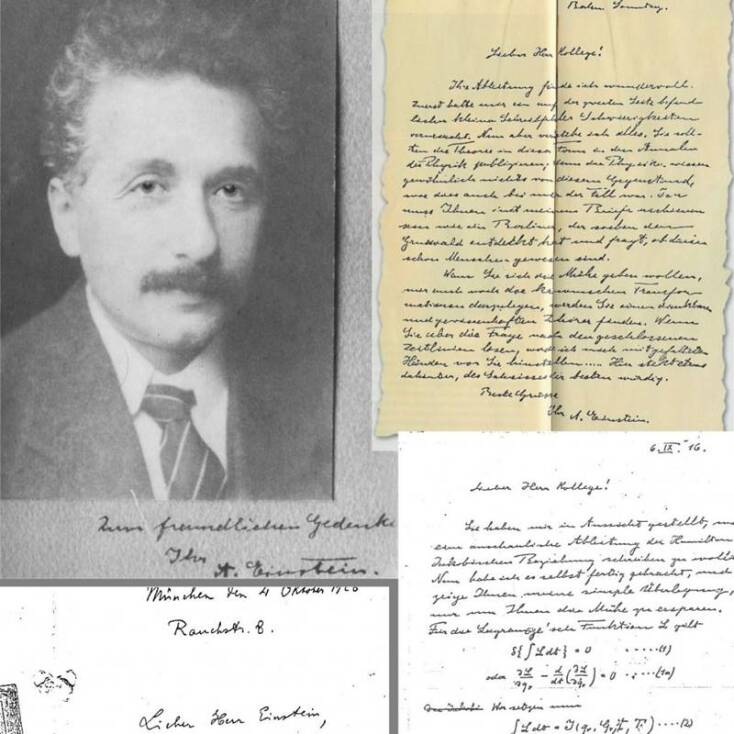 Zum freundlichen Gedenke
Ihr
A. Einstein.
Berlin Sonntag.
Lieber Herr Kollege!
Ihre Ableitung finde ich wundervoll.
Zuerst hatte mir ein auf der zweiten Seite befind-
licher kleiner Schreibfehler Schwierigkeiten
verursacht. Nun aber verstehe ich alles. Sie soll-
ten die Theorie in dieser Form in den Annalen
der Physik publizieren; denn die Physiker wissen
gewöhnlich nichts von diesem Gegenstand,
wie dies auch bei mir der Fall war. Ich
muss Ihnen mit meinem Briefe
wie ein Berliner, der soeben den
Grunewald entdeckt hat und fragt, ob darin
schon Menschen gewesen sind.
Wenn Sie sich die Mühe geben wollen,
mir auch noch die kanonischen Transfor
mationen darzulegen, werden Sie einen dankbaren
und gewissenhaften Zuhörer finden. Wenn
Sie aber die Frage nach den geschlossenen
Zeitlinien lösen, werde ich mich mit gefalteten
Händen vor Sie hinstellen.... Hier steckt etwas
dahinter, des Schweisses der besten würdig.
Beste Grüsse
Ihr A. Einstein.
6. IX. 16.
Lieber Herr Kollege!
Sie haben mir in Aussicht gestellt, m
eine anschauliche Ableitung der Hamilton
Jakobischen Beziehung schreiben zu wolle
Nun habe ich es selbst fertig gebracht, und
zeige Ihnen meine simple Überlegung,
nur um Ihnen die Mühe zu ersparen.
Für die Lagrange'sche Funktion L gilt
δ{∫L dt} = 0 .....(1)
oder ∂L/∂qν − d/dt(∂L/∂q̇ν) = 0 .....(1a)
Wir setzen nun
∫L dt = J(qν, Qν, t, T) .....(2)
München den 4 Oktober 1920
Rauchstr. 8.
Lieber Herr Einstein,